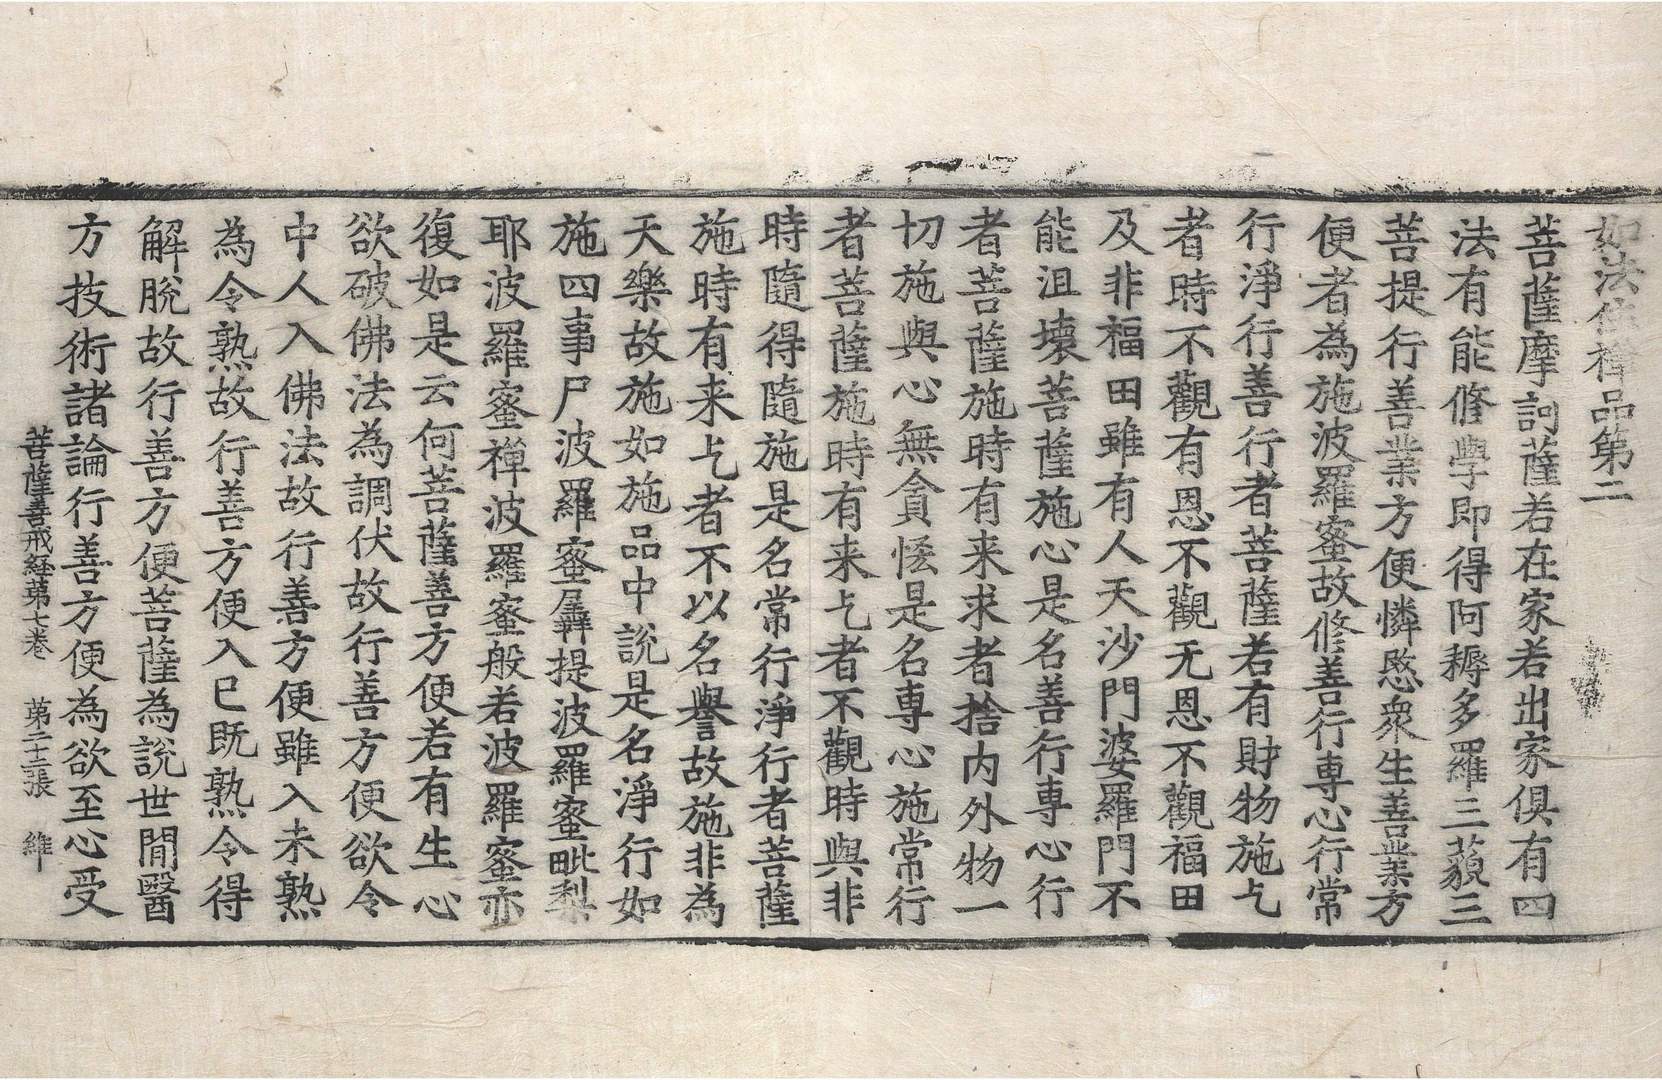 如法住禪品第二
菩薩摩訶薩若在家若出家俱有四
法有能脩學即得阿耨多羅三藐三
菩提行善業方便憐愍衆生善業方
便者為施波羅蜜故脩善行専心行常
行淨行善行者菩薩若有財物施乞
者時不觀有恩不觀无恩不觀福田
及非福田雖有人天沙門婆羅門不
能沮壞菩薩施心是名善行専心行
者菩薩施時有来求者捨内外物一
切施與心無貪悋是名専心施常行
者菩薩施時有来乞者不觀時與非
時隨得隨施是名常行淨行者菩薩
施時有来乞者不以名譽故施非為
天樂故施如施品中說是名淨行如
施四事尸波羅蜜羼提波羅蜜毗梨
耶波羅蜜禪波羅蜜般若波羅蜜亦
復如是云何菩薩善方便若有生心
欲破佛法為調伏故行善方便欲令
中人入佛法故行善方便雖入未熟
為令熟故行善方便入已既熟令得
解脫故行善方便菩薩為說世閒醫
方技術諸論行善方便為欲至心受
菩薩善戒経第七巻 第二十二張 維